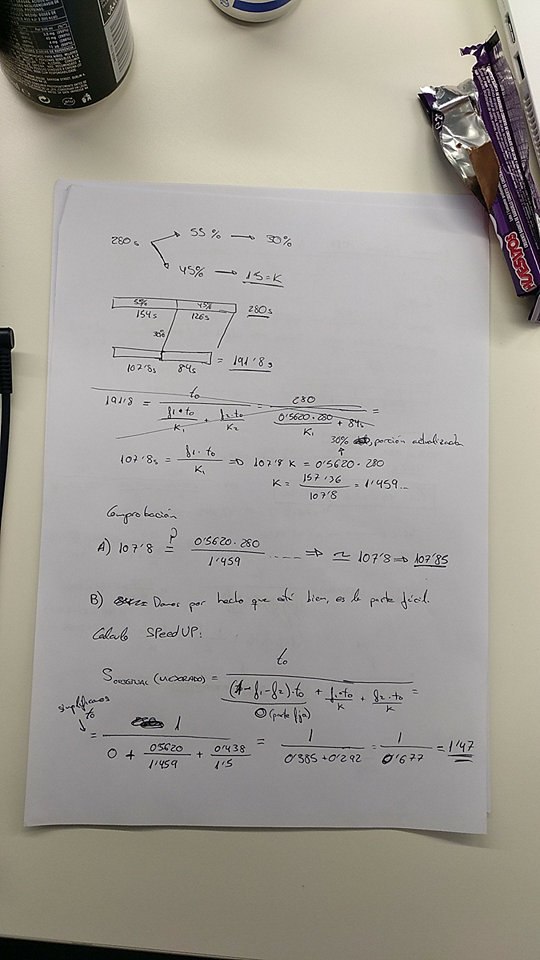 280s → 55% → 30%
→ 45% → 1'5=K
55% 45% 280s
154s 126s
30%
107'8s 84s = 191'8s
191'8 = t₀ / (f₁·t₀/K₁ + f₂·t₀/K₂) = 280 / (0'5620·280/K₁ + 84s) =
30% , porción actualizada
107'8s = f₁·t₀/K₁ ⇒ 107'8 K = 0'5620·280
K = 157'36/107'8 = 1'459...
Comprobación
A) 107'8 =? 0'5620·280/1'459 ..... ⇒ ≃ 107'8 ⇒ 107'85
B) Damos por hecho que está bien, es la parte fácil.
Calculo SpeedUP:
S ORIGINAL (MEJORADO) = t₀ / ((1-f₁-f₂)·t₀ + f₁·t₀/K + f₂·t₀/K) =
0 (parte fija)
simplificamos t₀
= 1 / (0 + 0'5620/1'459 + 0'438/1'5) = 1 / (0'385+0'292) = 1 / 0'677 = 1'47
HUESITOS